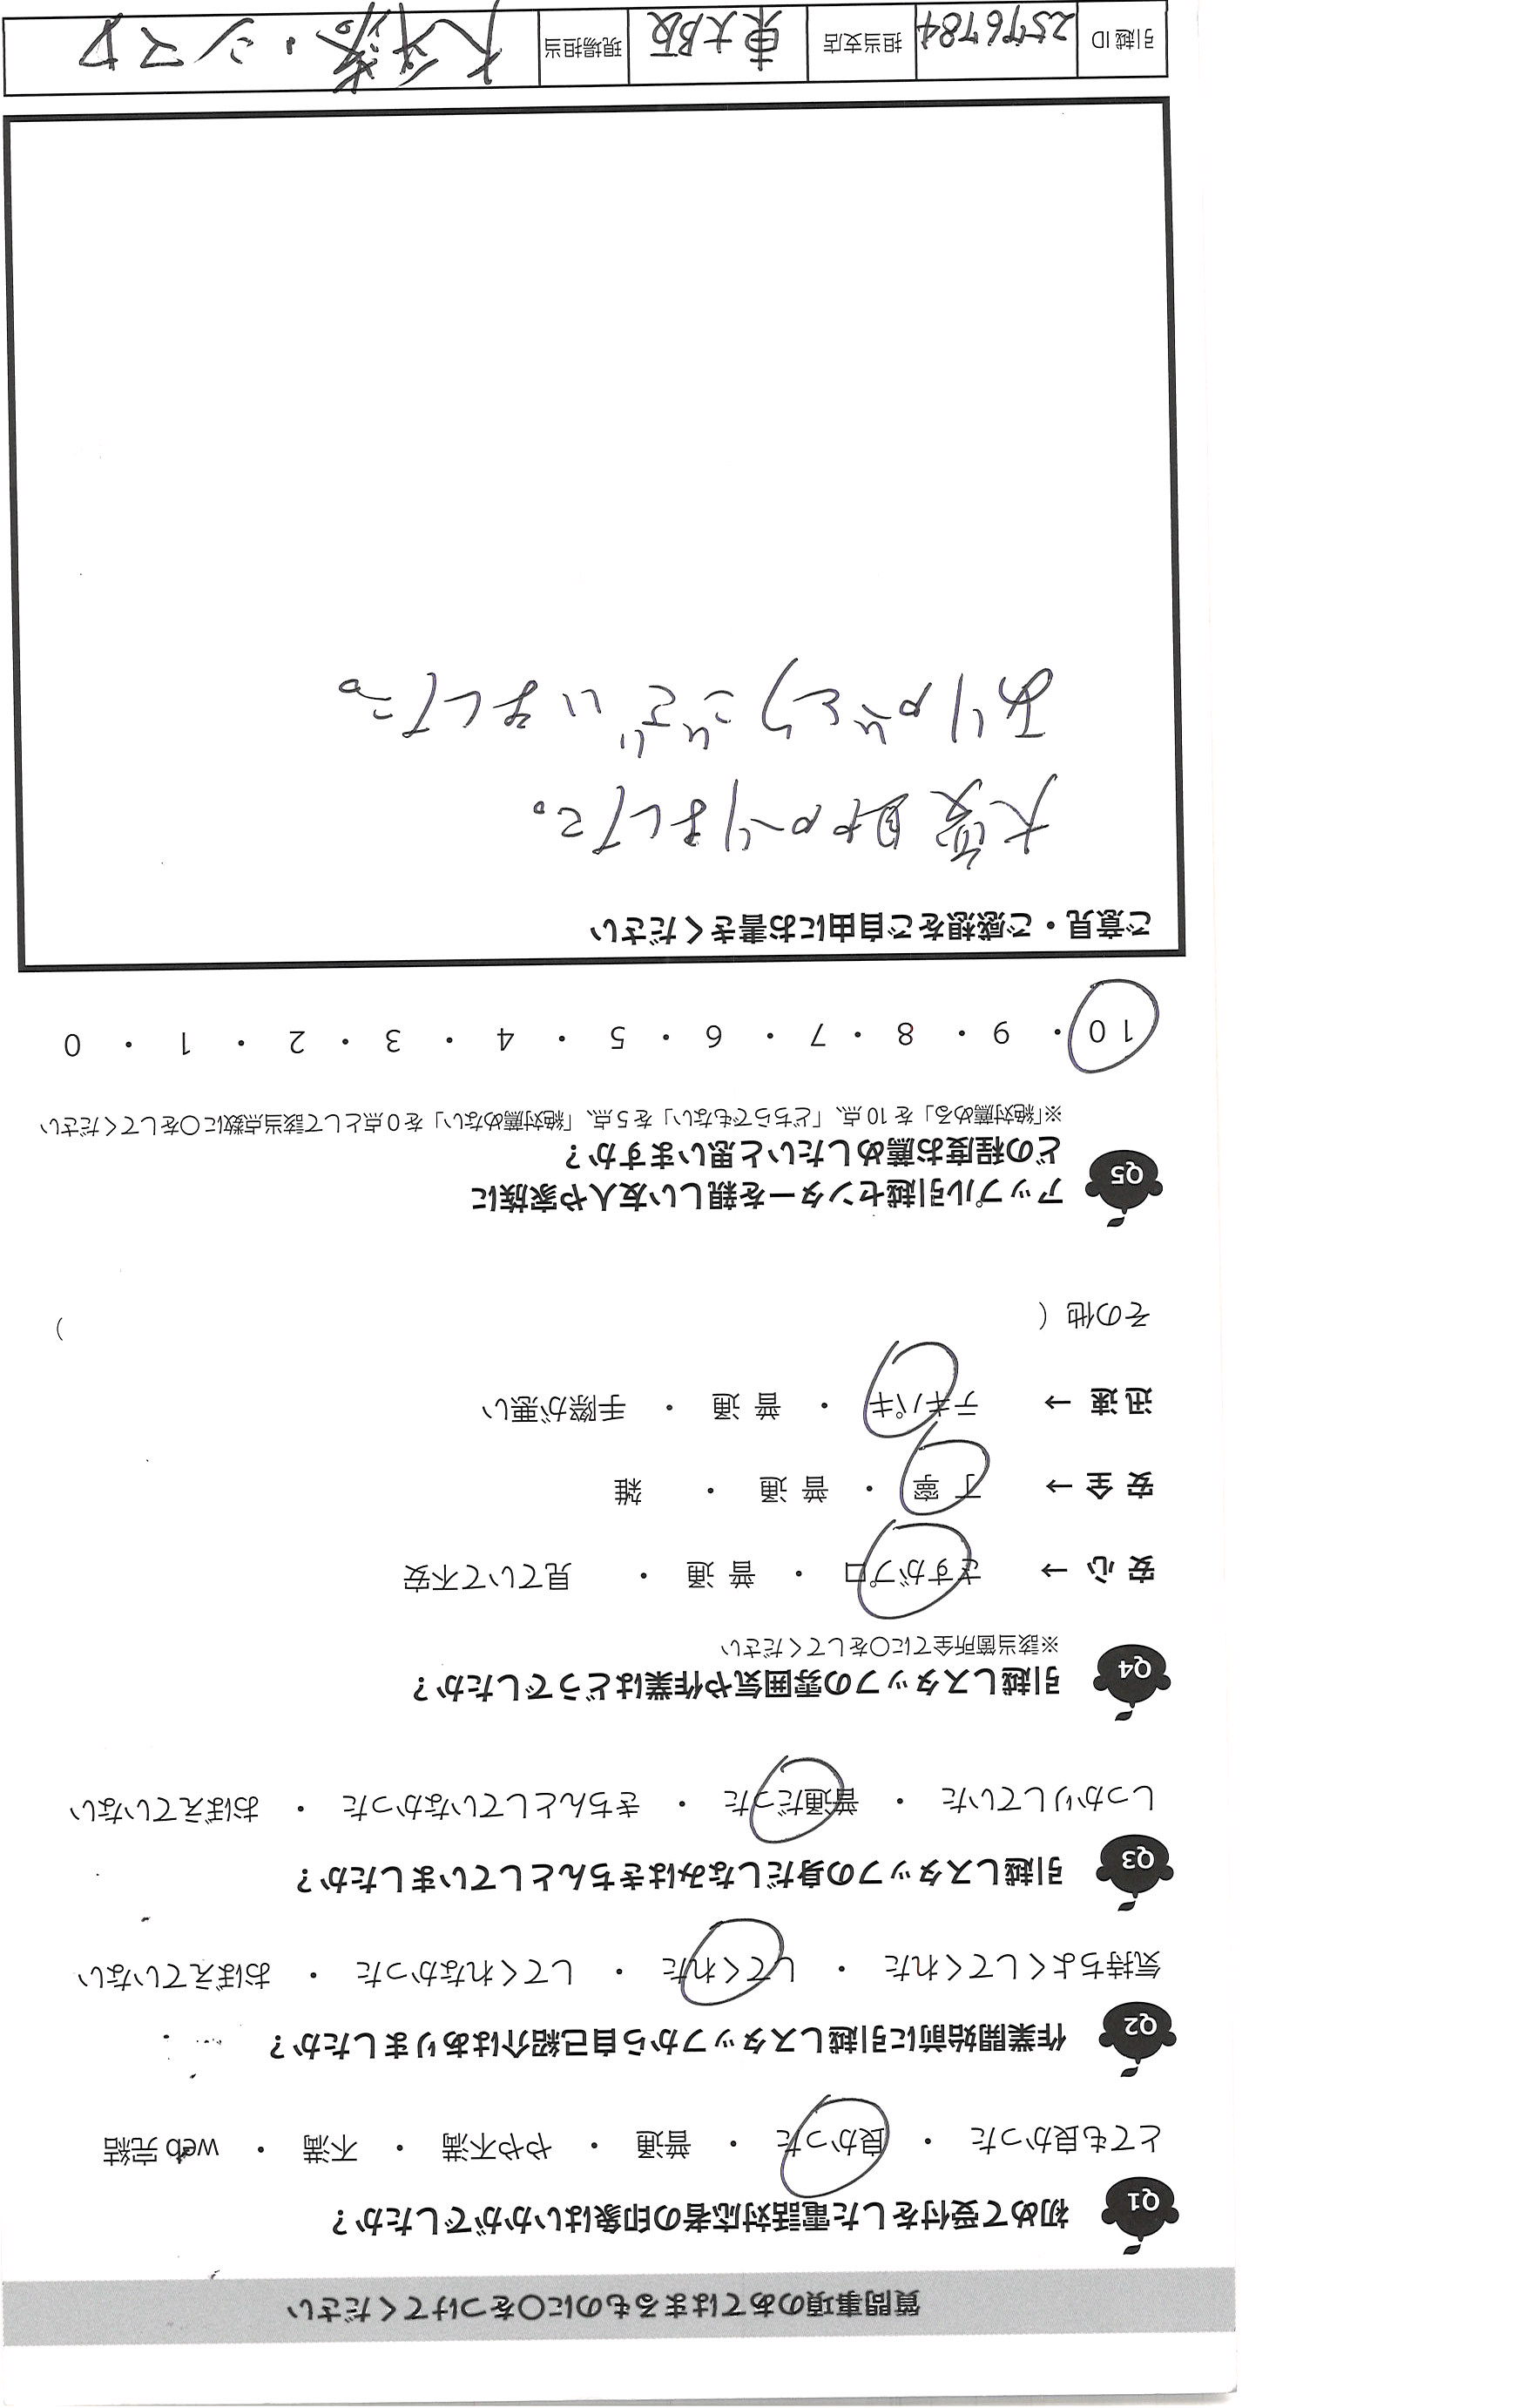 質問事項のあてはまるものに〇をつけてください
Q1 初めて受付をした電話対応者の印象はいかがでしたか？
とても良かった ・ 良かった ・ 普通 ・ やや不満 ・ 不満 ・ web 完結
Q2 作業開始前に引越しスタッフから自己紹介はありましたか？
気持ちよくしてくれた ・ してくれた ・ してくれなかった ・ おぼえていない
Q3 引越しスタッフの身だしなみはきちんとしていましたか？
しっかりしていた ・ 普通だった ・ きちんとしていなかった ・ おぼえていない
Q4 引越しスタッフの雰囲気や作業はどうでしたか？
※該当箇所全てに〇をしてください
安心 → さすがプロ ・ 普通 ・ 見ていて不安
安全 → 丁寧 ・ 普通 ・ 雑
迅速 → テキパキ ・ 普通 ・ 手際が悪い
その他（ ）
Q5 アップル引越センターを親しい友人や家族に
どの程度お薦めしたいと思いますか？
※「絶対薦める」を 10 点、「どちらでもない」を 5 点、「絶対薦めない」を 0 点として該当点数に〇をしてください
10 ・ 9 ・ 8 ・ 7 ・ 6 ・ 5 ・ 4 ・ 3 ・ 2 ・ 1 ・ 0
ご意見・ご感想をご自由にお書きください
大変助かりました。
ありがとうございました。
引越 ID 2576784 担当支店 東大阪 現場担当 シマダ